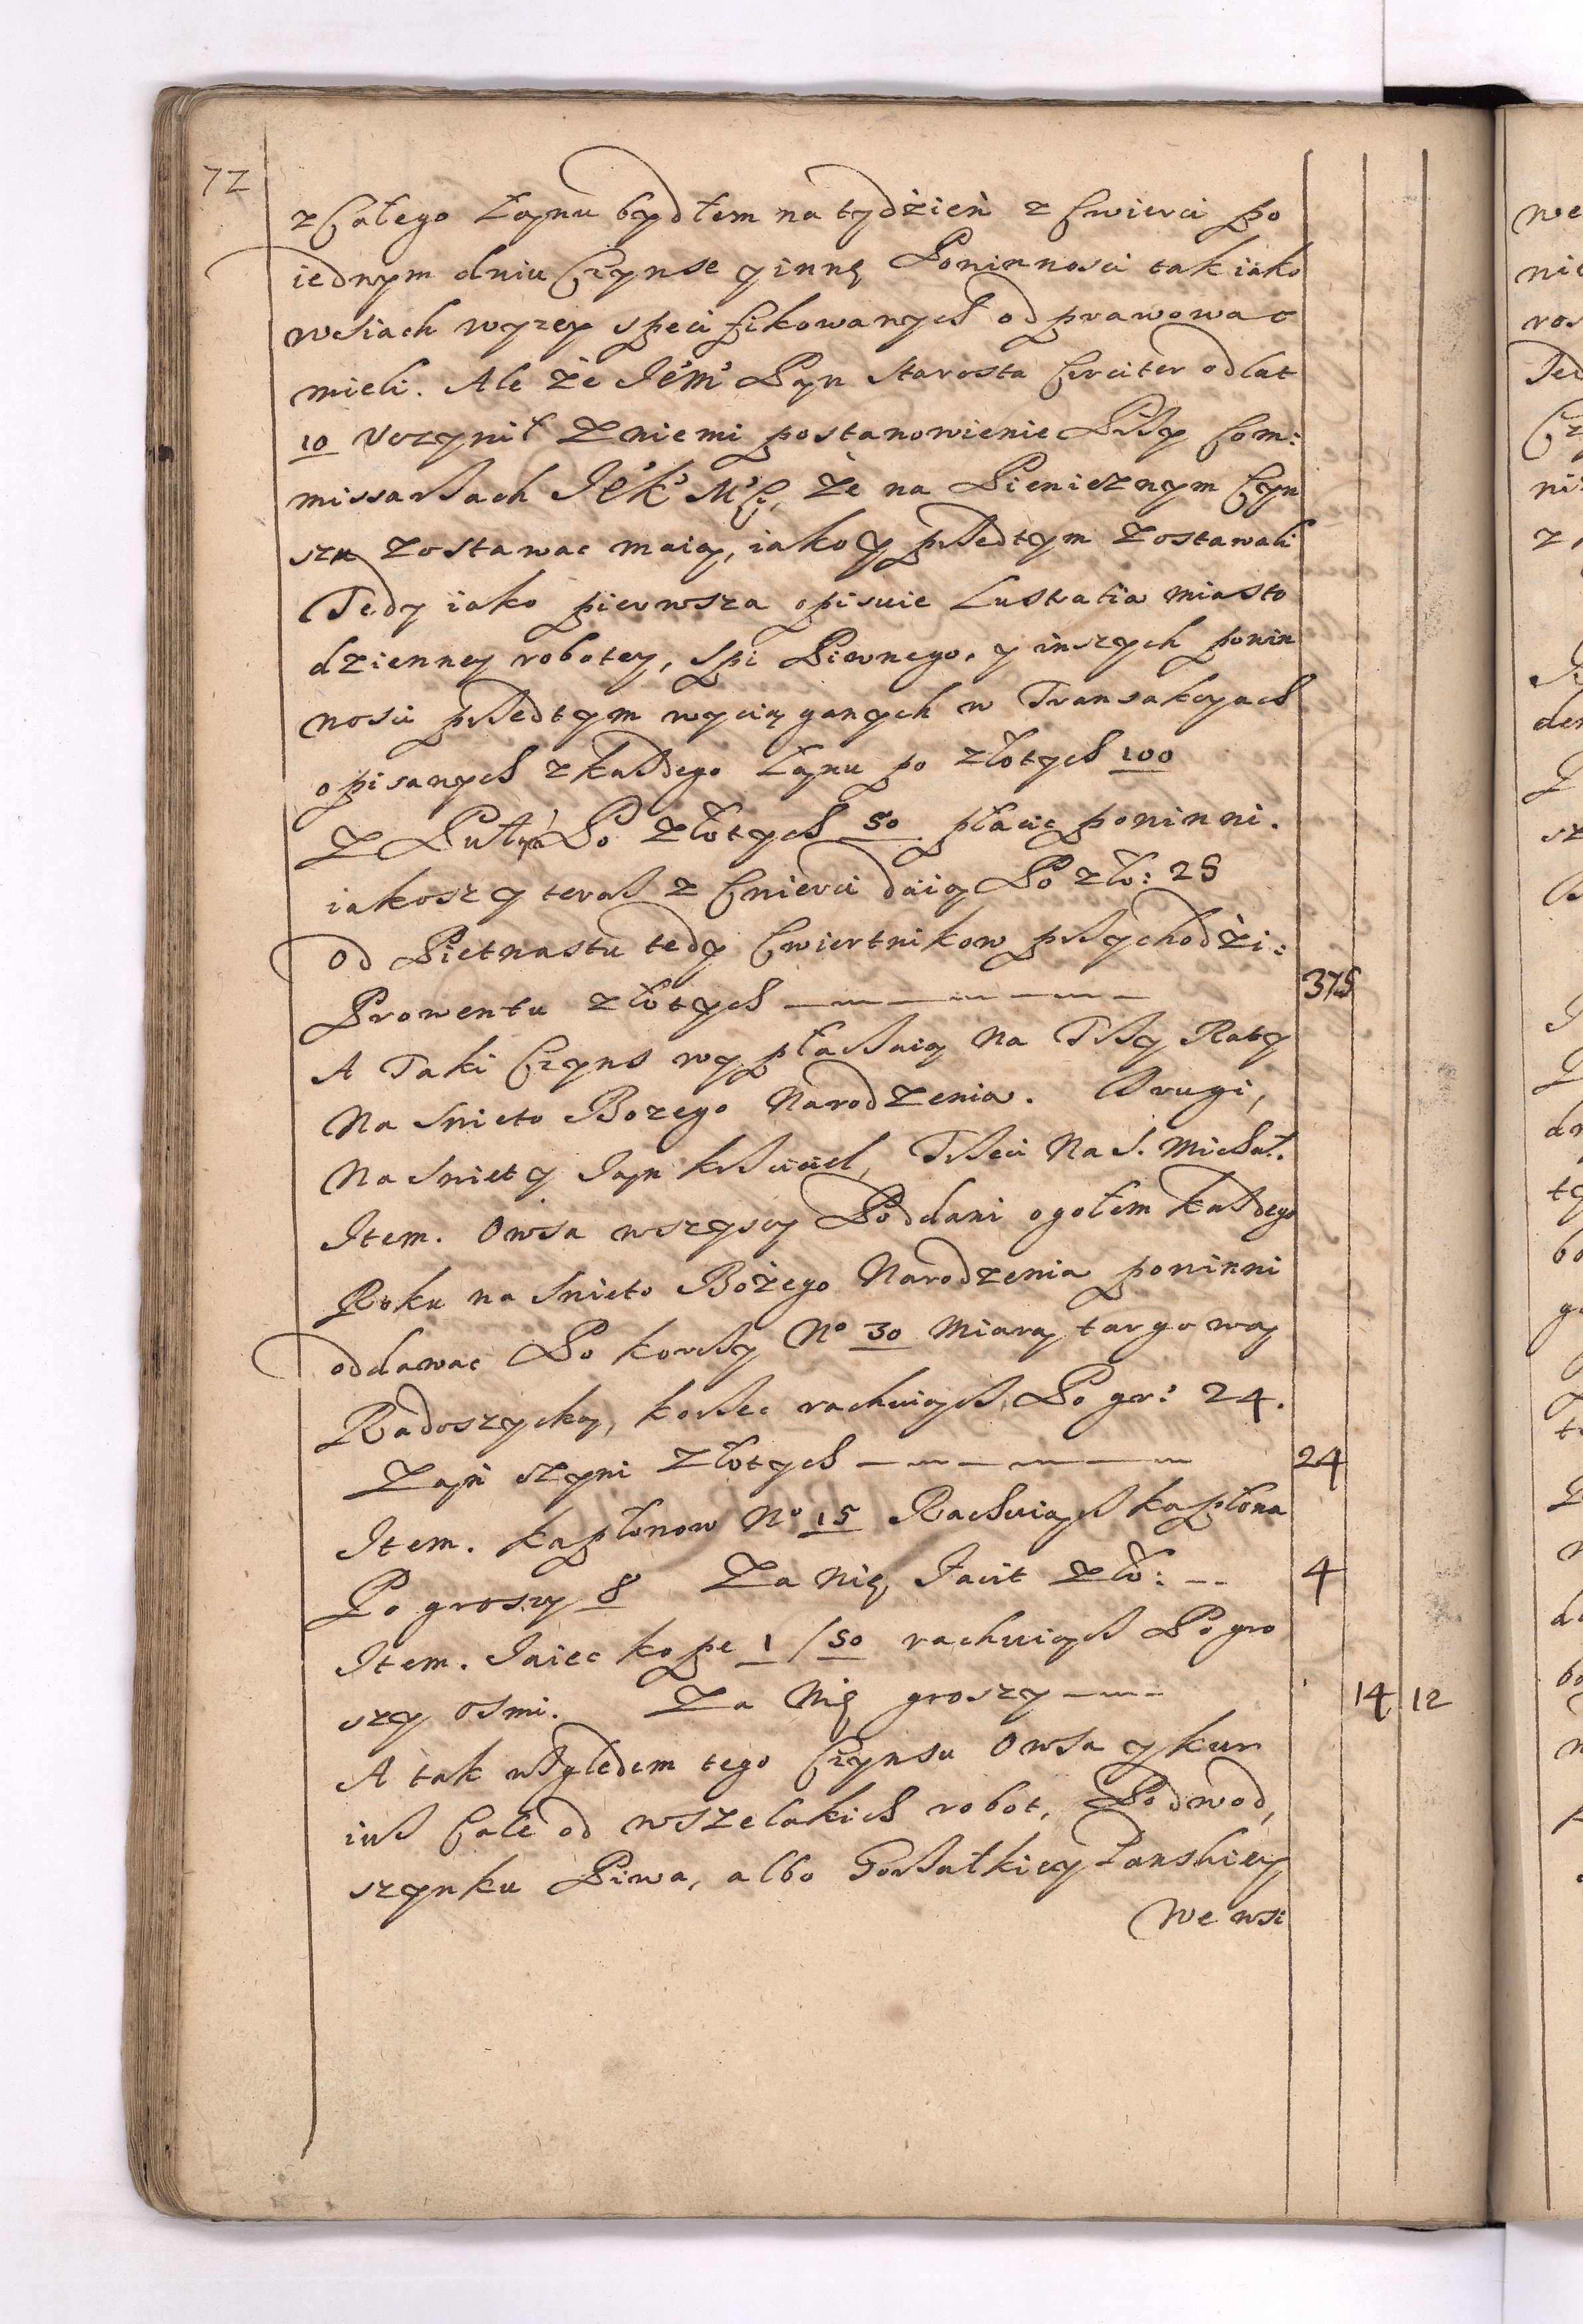 72
z Całego Łanu bydłem na tydźień z Cwierci po
iednym dniu Czynse y innę Powinnosci tak iako
wsiach wyzey specifikowanych odprawowac
mieli. Ale że Jeͦm Pan Starosta Circiter od lat
10 Uczynił z niemi postanowienie Przy Com:
missarzach JeK Mci, że na Pienieznym Czyn
szu zostawac maią, iako y przedtym zostawali
Tedy iako pierwsza opisuie Lustratia miasto
dzienney robotey, Spi Piwnego, y inszych powin
nosci przedtym wyciąganych w Transakcyach
opisanych z kazdego Łanu po złotych 100
Z Pułłan Po złotych 50 płacic powinni.
iakosz y teraz z Cwierci daią Po zło: 25
Od Pietnastu tedy Cwiertnikow przychodźi:
Prowentu złotych 375
A Taki Czyns wypłacaią Na Trzy Raty
Na Swieto Bozego Narodzenia. Drugi,
Na Swięty Jan krzciciel, Trzeci Na S. Michał.
Item. Owsa wszyscy Poddani ogołem kazdego
Roku na Swieto Bożego Narodzenia powinni
oddawac Po korcy No 30 Miarą targową
Radoszycką, korzec rachuiąc Po gr: 24.
Zań czyni złotych 24
Item. kapłonow No 15 Rachuiąc kapłona
Po groszy 8 Za Nię, Facit zło: 4
Item. Jaiec kope 1/50 rachuiąc Po gro
szy osmi. Za Nię groszy 14 12
A tak względem tego Czynsu Owsa y kur
iuz Cale od wszelakich robot, Podwod,
szynku Piwa, albo Gorzałki ey Panskiey
We wsi